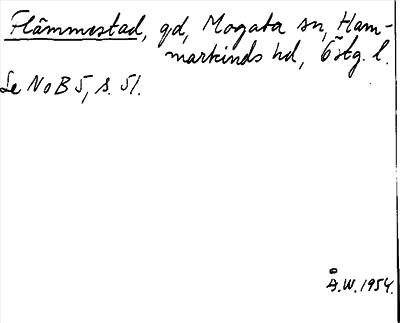 Flämmestad, gd, Mogata sn, Ham-
markinds hd, Östg. l.
Se NoB 5, s. 51.
Å.W. 1954.